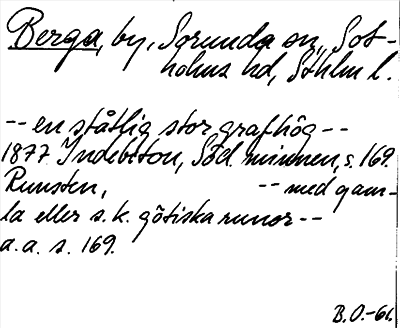 Berga, by, Sorunda sn, Sot-
holms hd, Sthlm l.
-- en ståtlig stor grafhög --
1877 Indebetou, Söd. minnen, s. 169.
Runsten, -- med gam-
la eller s. k. götiska runor --
a. a. s. 169.
B. O.-61.